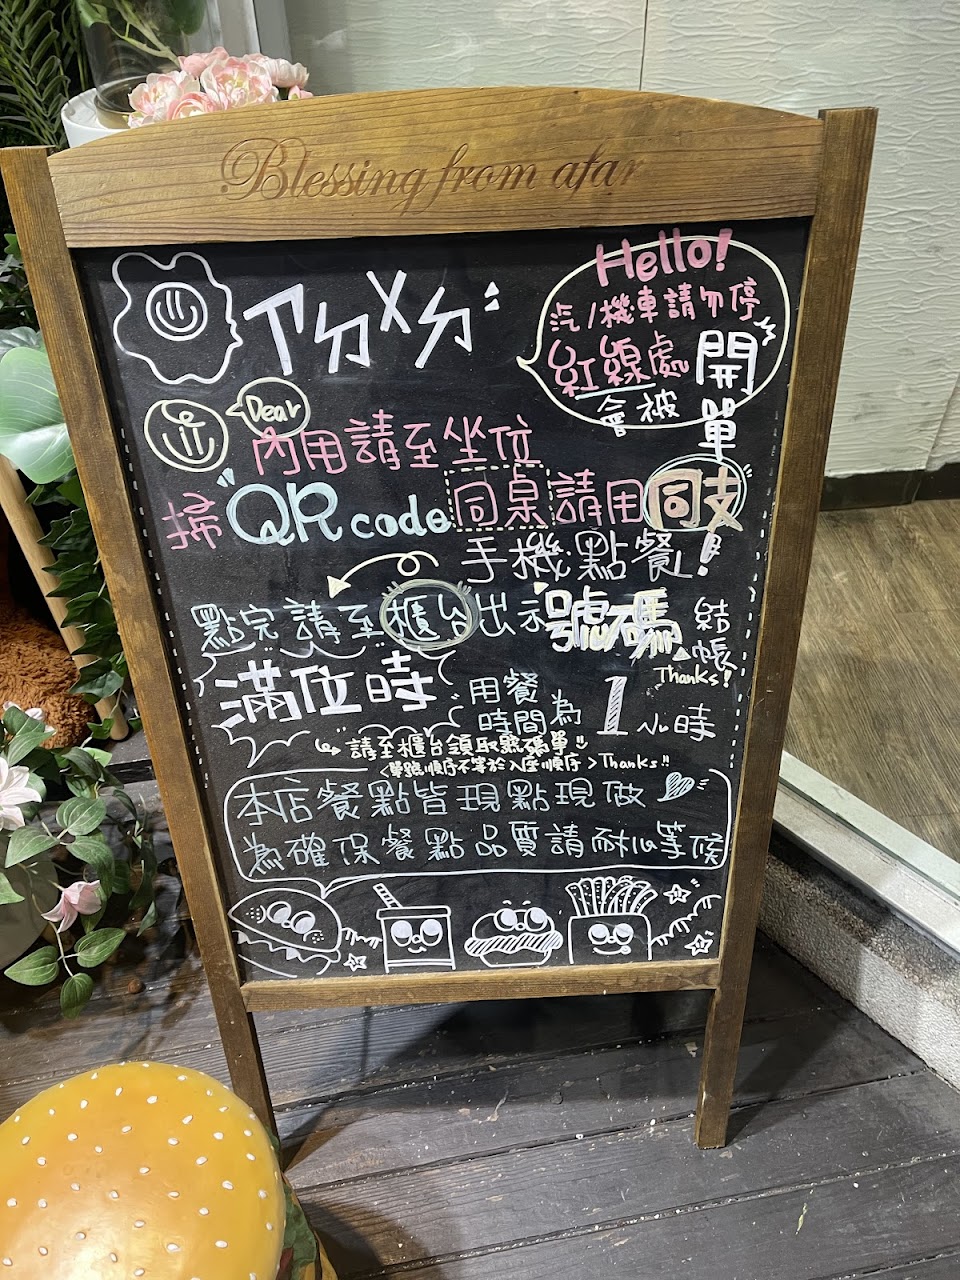 Blessing from afar
Hello!
汽/機車請勿停
紅線處
會被
開單
ㄗㄉㄨㄉ
Dear
內用請至坐位
掃QR code同桌請用同支
手機點餐!
點完請至櫃台出示號碼結帳
Thanks!
滿位時
用餐時間為1小時
請至櫃台領取號碼單
<單號順序不等於入座順序>Thanks!!
本店餐點皆現點現做
為確保餐點品質請耐心等候